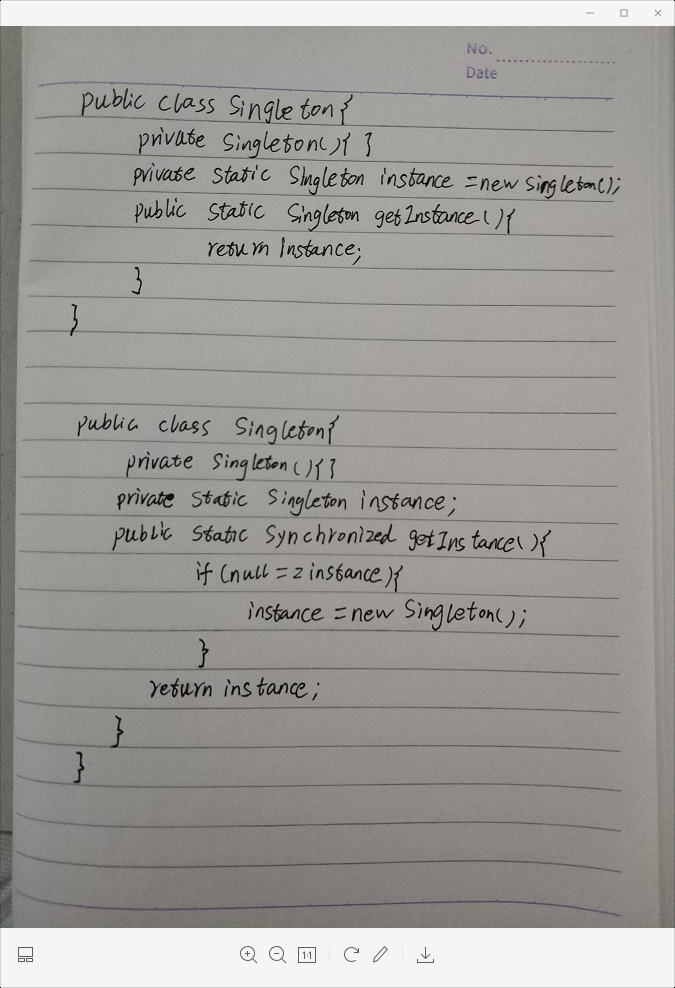 No.
Date
public class Singleton{
private Singleton(){ }
private static Singleton instance =new Singleton();
public static Singleton getInstance(){
return instance;
}
}
public class Singleton{
private Singleton(){}
private static Singleton instance;
public static Synchronized getInstance(){
if (null == instance){
instance =new Singleton();
}
return instance;
}
}
1:1